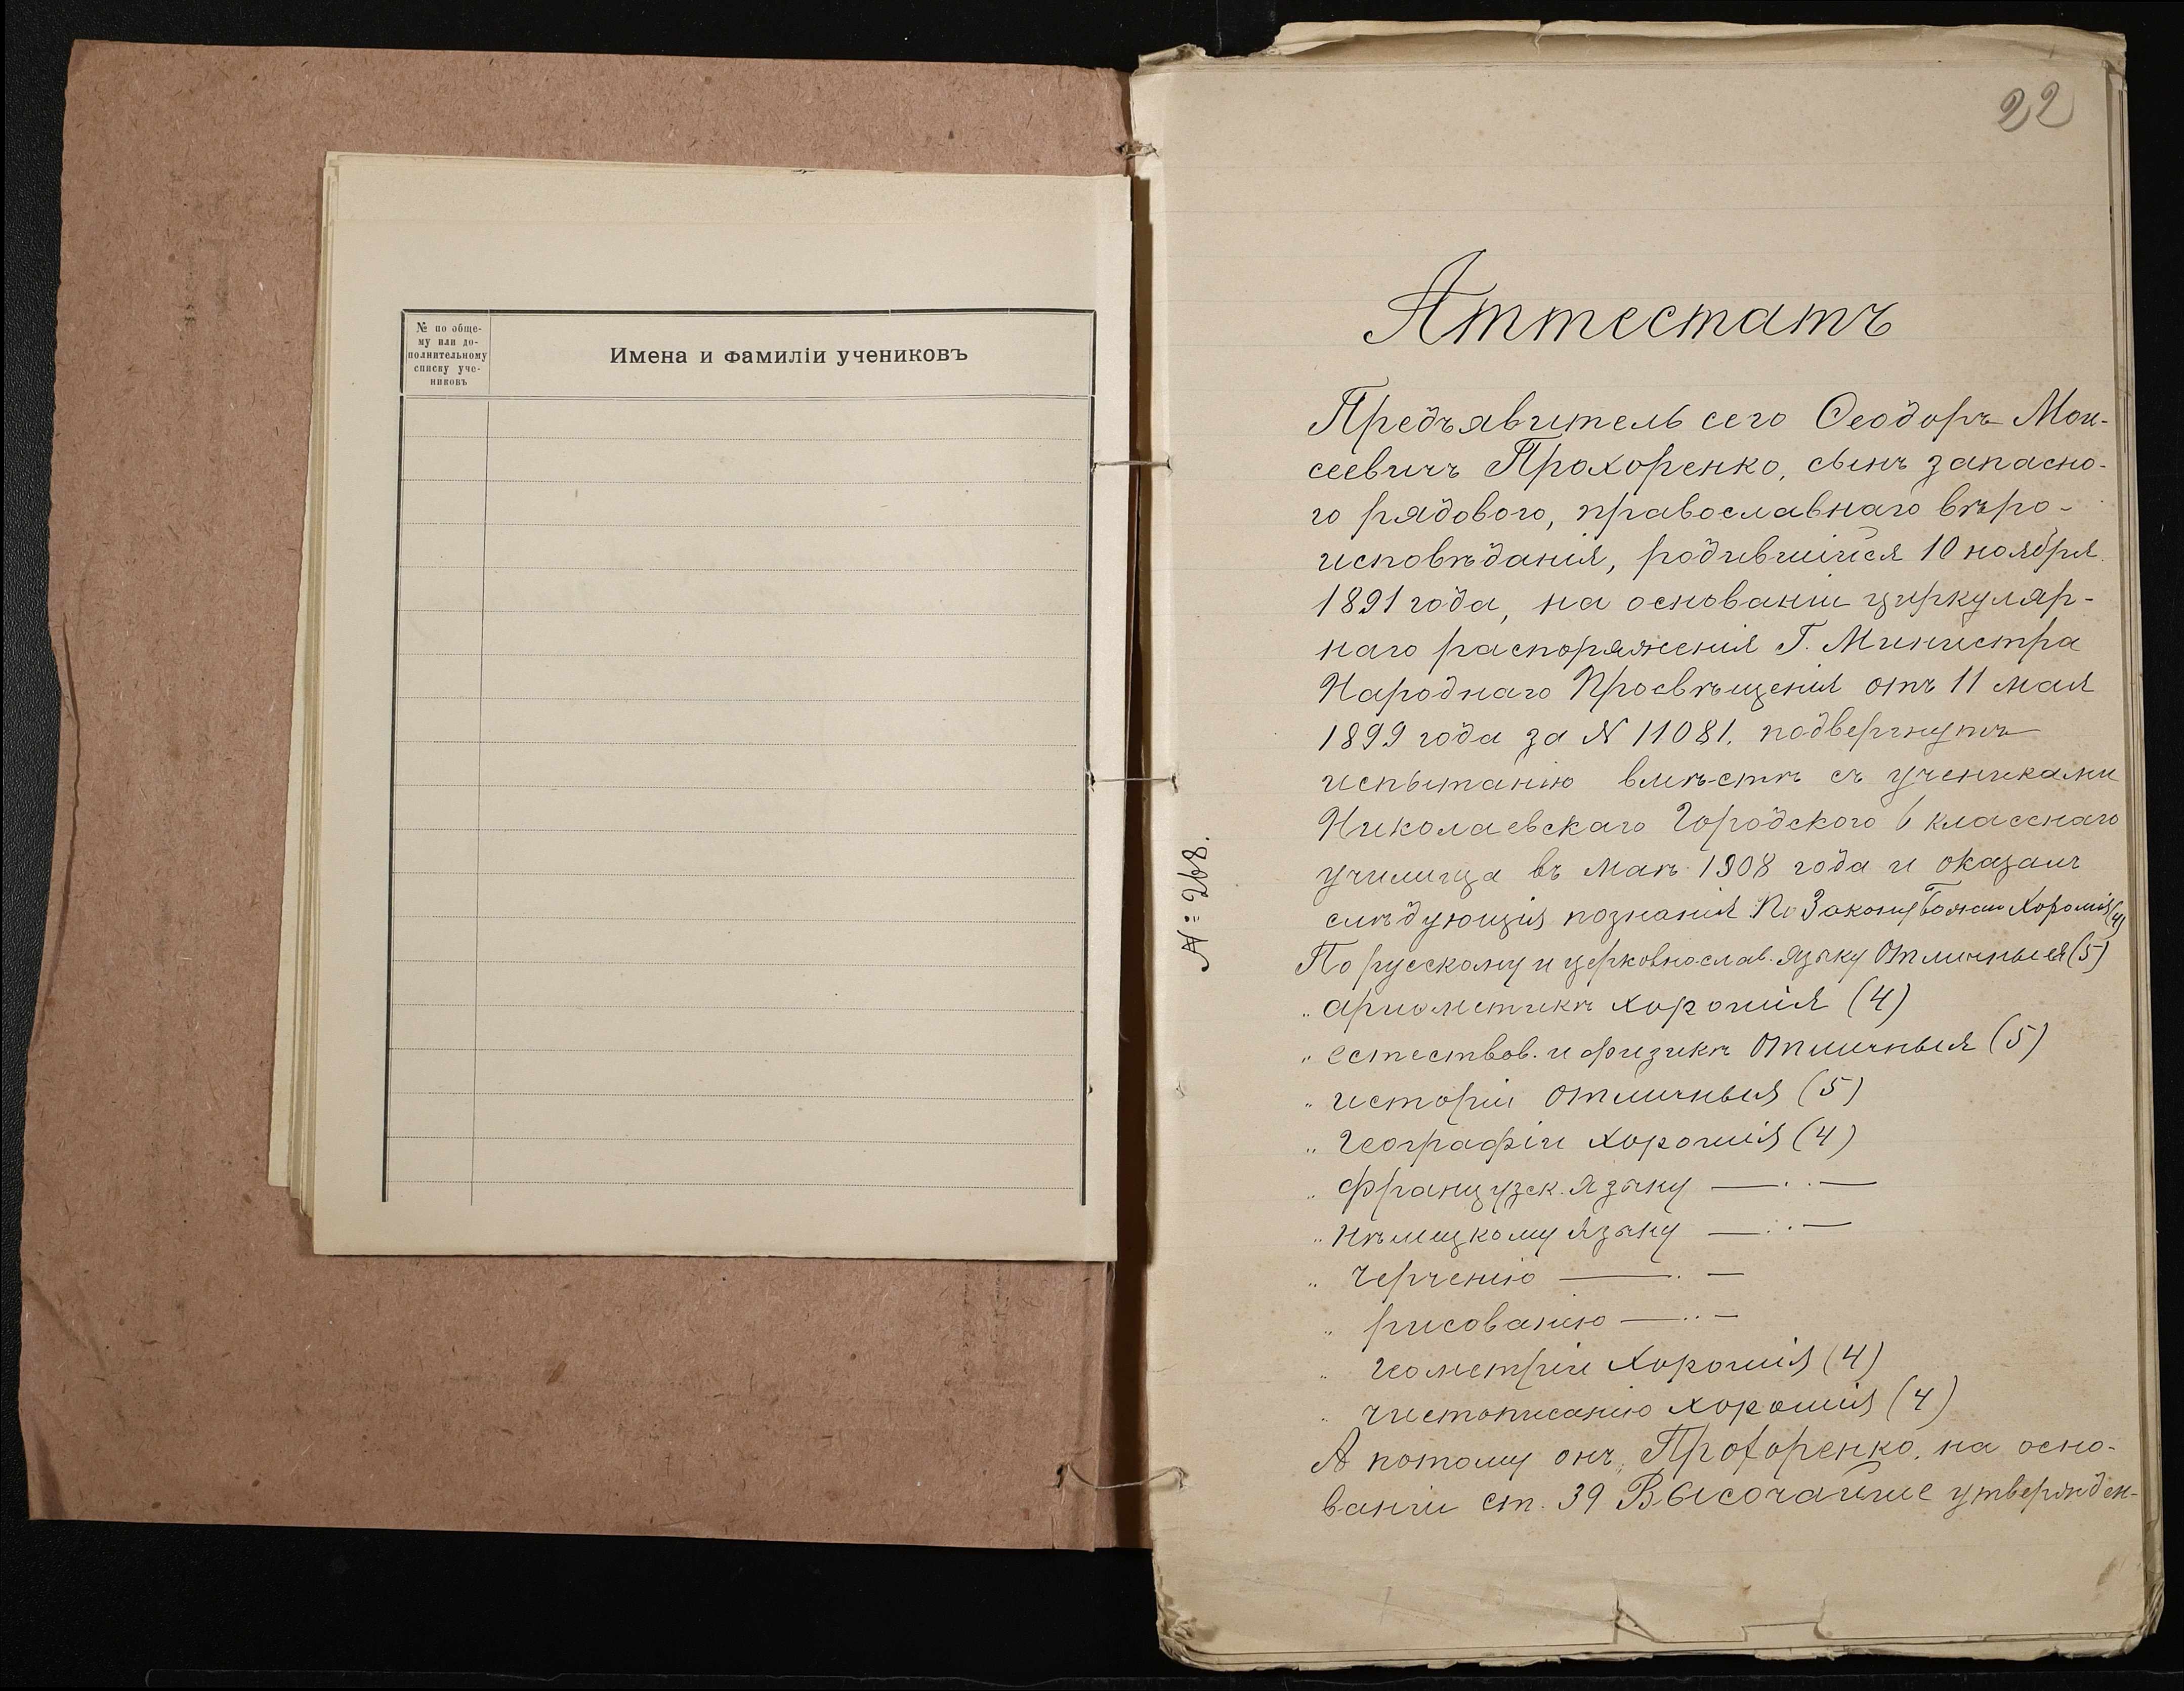 № по обще-
му или до-
полнительному
списку уче-
никовъ
Имена и фамиліи учениковъ
22
Аттестатъ
Предъявитель сего Ѳеодоръ Мои-
сеевичъ Прохоренко, сынъ запасно-
го рядового, православнаго вѣро-
исповѣданія, родившійся 10 ноября
1891 года, на основаніи циркуляр-
наго распоряженія Г. Министра
Народнаго Просвѣщенія отъ 11 мая
1899 года за № 11081. подвергнутъ
испытанію вмѣстѣ съ учениками
Николаевскаго Городского 6 класснаго
училища въ маѣ 1908 года и оказалъ
слѣдующія познанія По Закону Божію Хорошія (4)
По русскому и церковно-слав. языку Отличныя (5)
„ ариѳметикѣ хорошія (4)
„ естествов. и физикѣ Отличныя (5)
„ исторіи Отличныя (5)
„ географіи Хорошія (4)
„ французск. языку — . . —
„ нѣмецкому языку — . . —
„ черченію — . —
„ рисованію — .. —
„ геометріи Хорошія (4)
„ чистописанію хорошія (4)
А потому онъ, Прохоренко, на осно-
ваніи ст. 39 Высочайше утвержден-
№ 268.